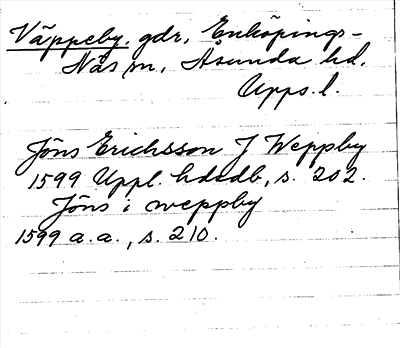 Väppeby. gdr, Enköpings-
Näs sn, Åsunda hd.
Upps. l.
Jöns Erichsson J Weppby
1599 Uppl. hdsdb, s. 202.
Jöns i weppby
1599 a.a., s. 210.